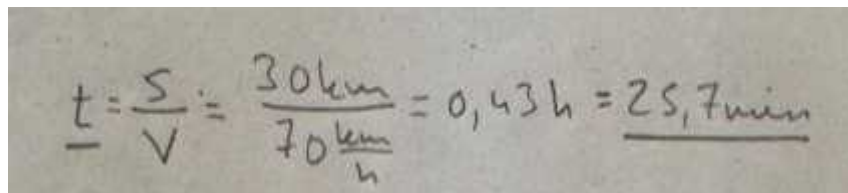 t = s/v = 30km/70 km/h = 0,43h = 25,7min